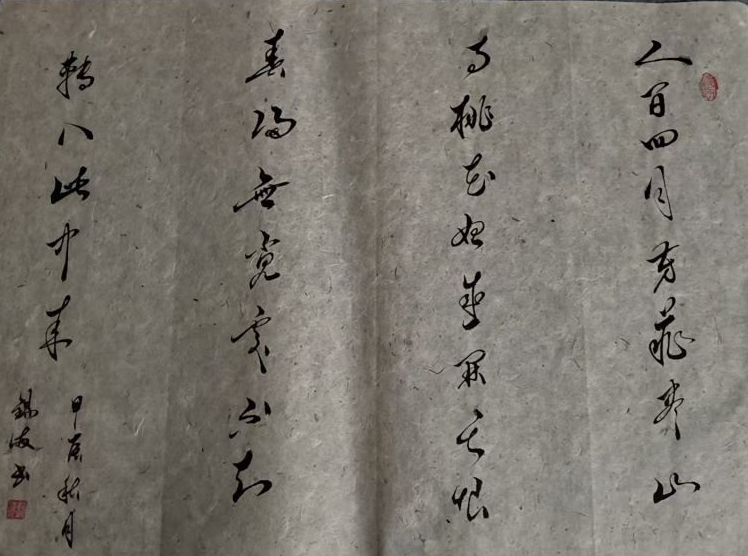 人間四月芳菲尽山
寺桃花始盛開長恨
春歸無覓處不知
轉入此中来
甲辰秋月
书